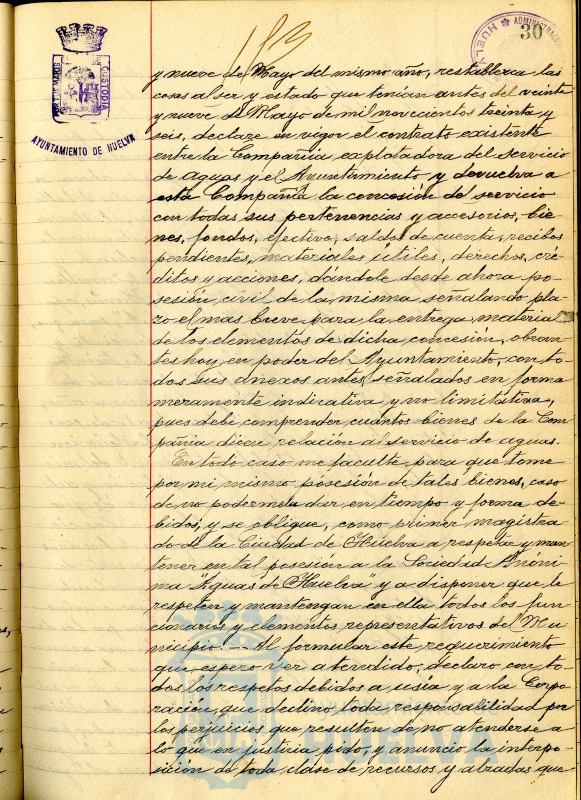 183
30
ADMINISTRACION
HUELVA
PUERTO DE MARIS
CUSTODIA
AYUNTAMIENTO DE HUELVA
y nueve de Mayo del mismo año, restablezca las
cosas al ser y estado que tenian antes del veinte
y nueve de Mayo de mil novecientos treinta y
seis, declare en vigor el contrato existente
entre la Compañia explotadora del servicio
de aguas y el Ayuntamiento y devuelva a
esta Compañia la concesión de servicio
con todas sus pertenencias y accesorios, bie-
nes, fondos, efectivo, saldos de cuenta, recibos
pendientes, materiales útiles, derechos, cré-
ditos y acciones, dándole desde ahora po-
sesión civil de la misma señalando pla-
zo el mas breve para la entrega material
de los elementos de dicha concesión, obran-
tes hoy en poder del Ayuntamiento, con to-
dos sus anexos antes señalados en forma
meramente indicativa y no limitativa,
pues debe comprender cuantos bienes de la Com
pañia dicen relación al servicio de aguas.
En todo caso me faculte para que tome
por mi mismo posesión de tales bienes, caso
de no podermela dar en tiempo y forma de-
bidos, y se obligue, como primer magistra
do de la Ciudad de Huelva a respetar y man
tener en tal posesión a la Sociedad Anóni
ma "Aguas de Huelva" y a disponer que la
respeten y mantengan en ella todos los fun-
cionarios y elementos representativos del Mu
nicipio. — Al formular este requerimiento
que espero ver atendido, declaro con to-
dos los respetos debidos a usía y a la Corpo
ración, que declino toda responsabilidad por
los perjuicios que resulten de no atenderse a
lo que en justicia pido, y anuncio la interpo-
sición de toda clase de recursos y alzadas que
HUELVA